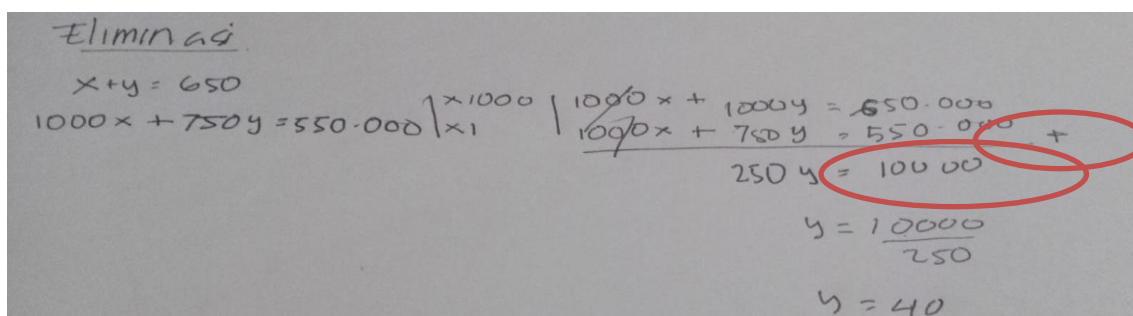 Eliminasi
x+y = 650
1000x + 750y = 550.000 | x1000 | x1 |
1000x + 1000y = 650.000
1000x + 750y = 550.000 +
250 y = 10000
y = 10000
250
y = 40